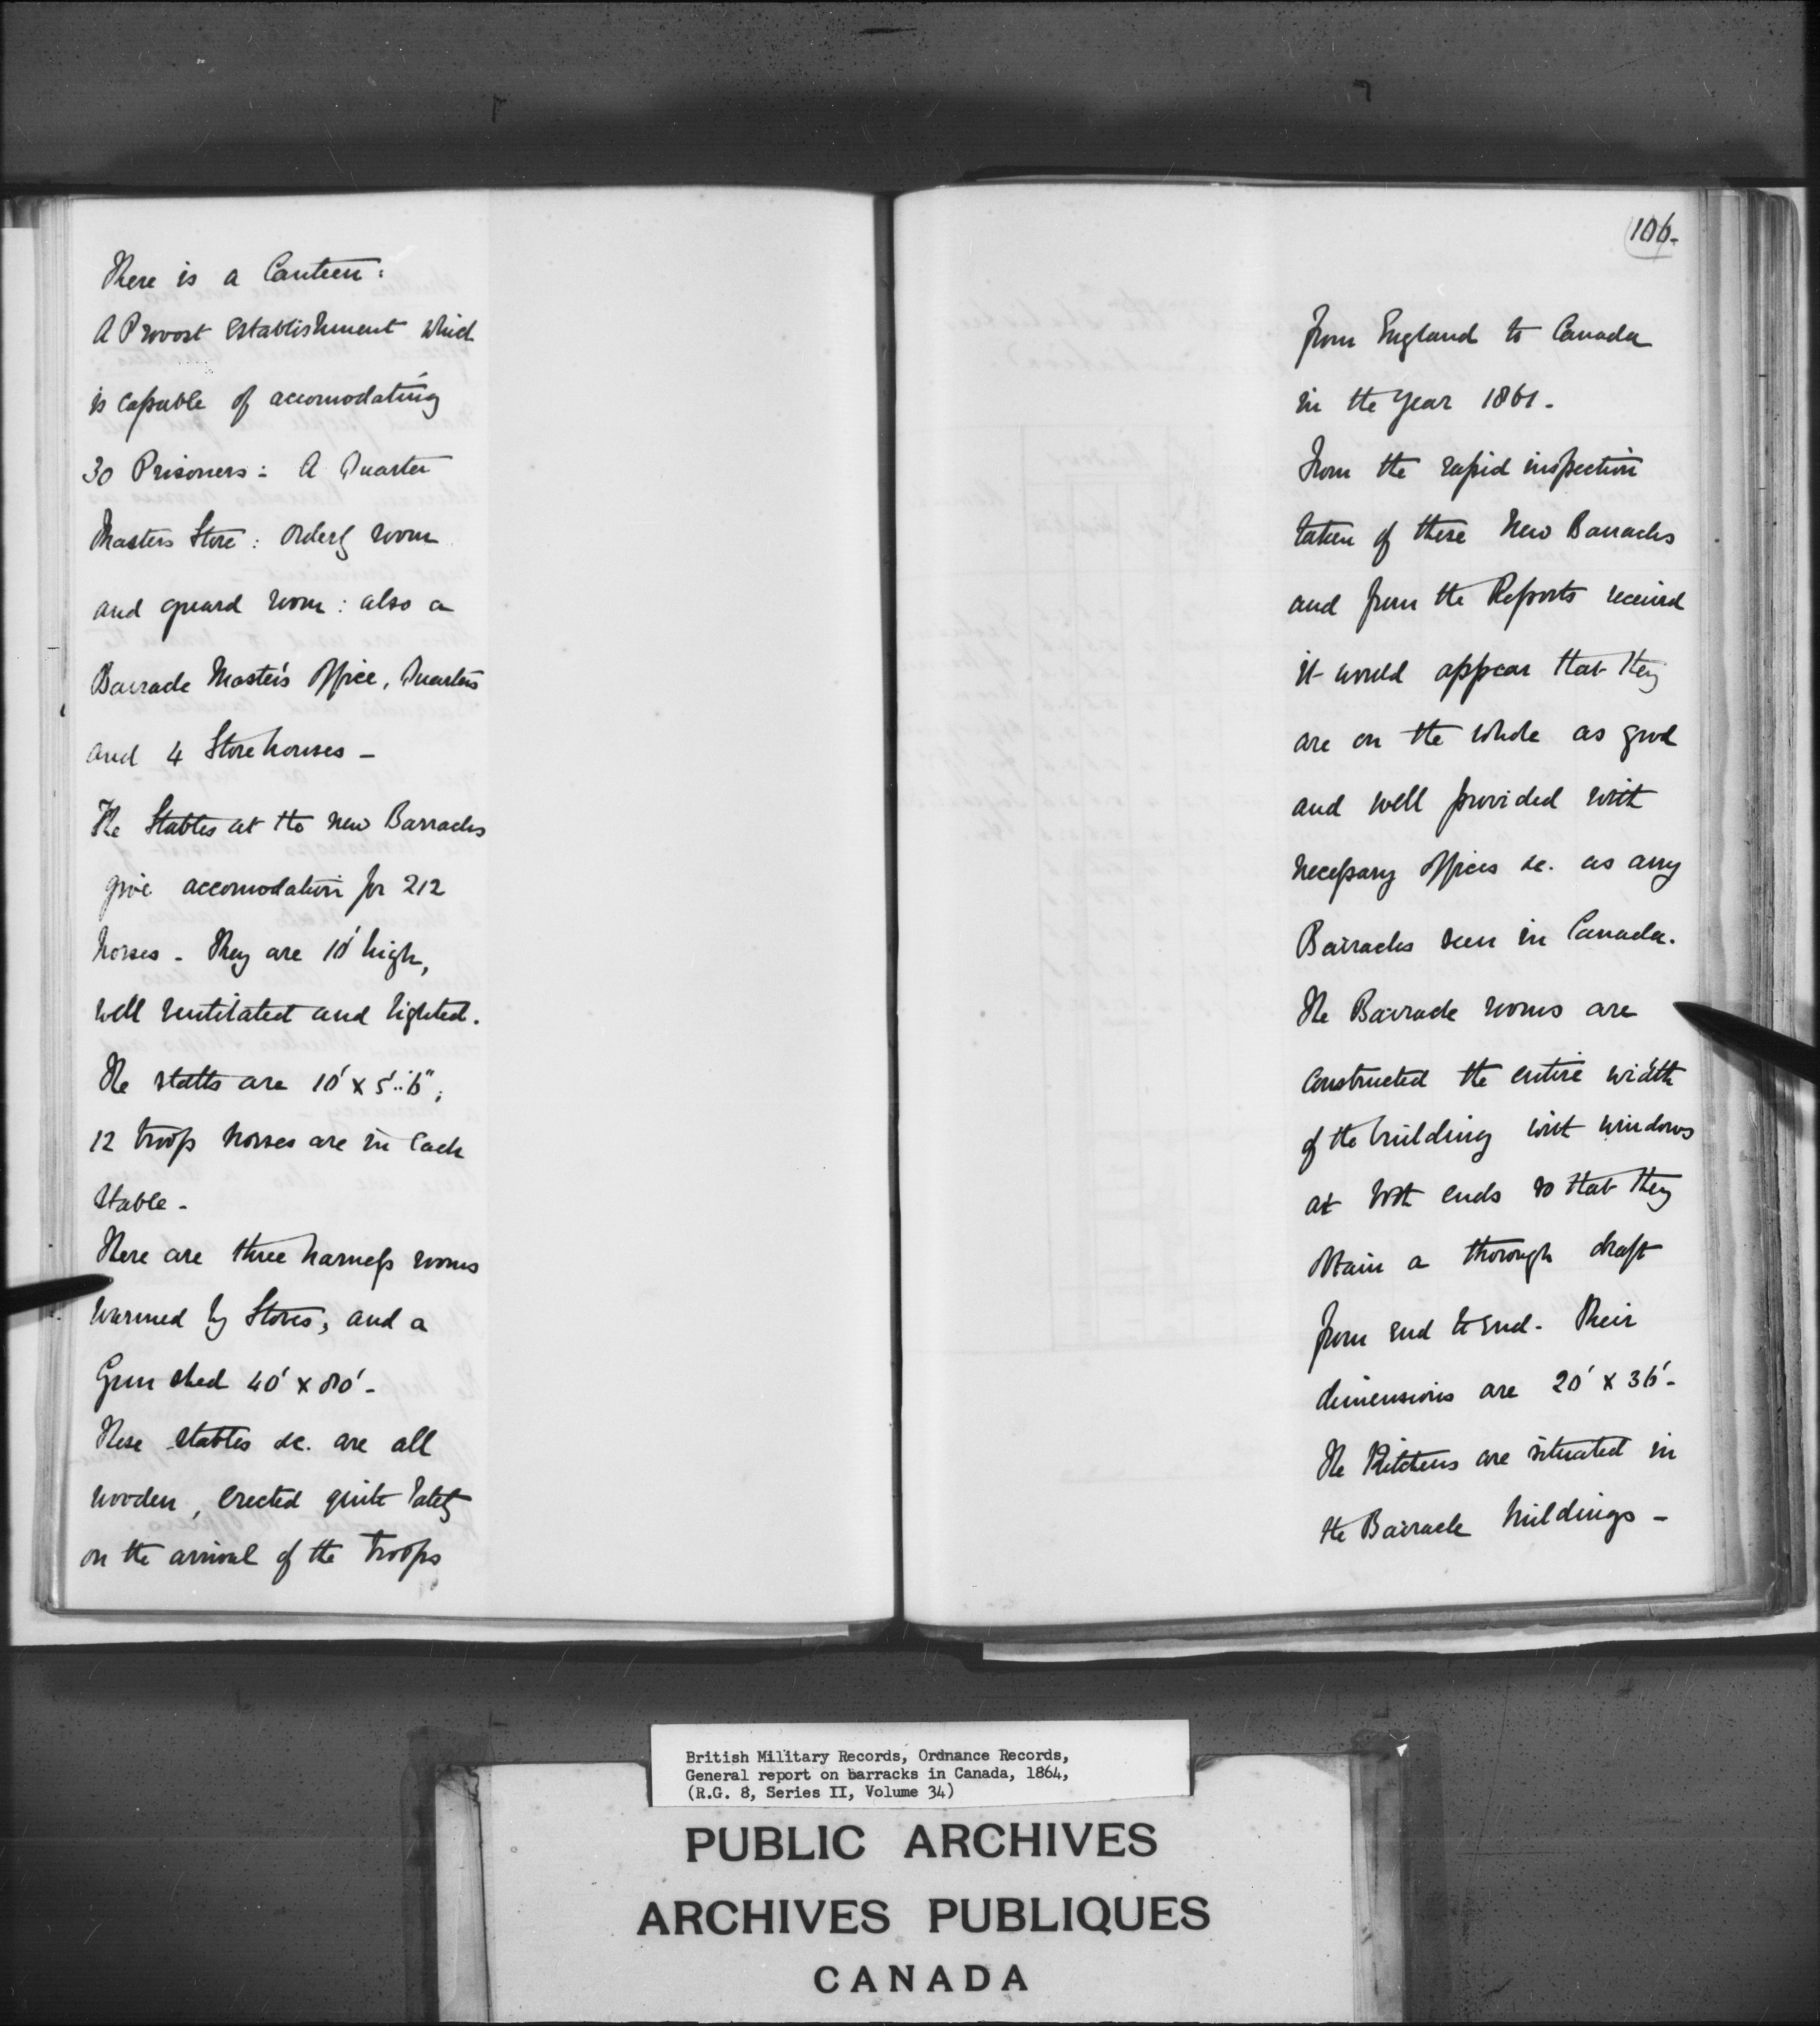 There is a Canteen:
A Provost establishment which
is capable of accomodating
30 Prisoners: A Quarter
Masters Store: Orderly room
and guard room: also a
Barrack Master's Office, Quarters
and 4 Store houses -
The Stables at the new Barracks
give accomodation for 212
horses - They are 10' high,
well ventilated and lighted.
The stalls are 10' x 5'..6",
12 troop horses are in each
stable -
There are three harness rooms
warmed by Stoves, and a
Gun shed 40' x 80' -
These stables &c. are all
wooden, erected quite lately
on the arrival of the Troops
106.
from England to Canada
in the year 1861 -
From the rapid inspection
taken of these New Barracks
and from the Reports received
it would appear that they
are on the whole as good
and well provided with
necessary offices &c. as any
Barracks seen in Canada.
The Barrack rooms are
constructed the entire width
of the building with windows
at both ends so that they
obtain a thorough draft
from end to end - Their
dimensions are 20' x 36' -
The Kitchens are situated in
the Barrack buildings -
British Military Records, Ordnance Records,
General report on barracks in Canada, 1864,
(R.G. 8, Series II, Volume 34)
PUBLIC ARCHIVES
ARCHIVES PUBLIQUES
CANADA